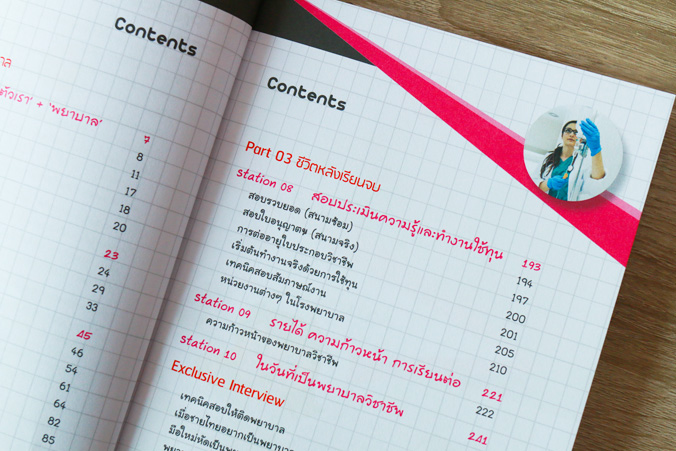 Contents
ตัวเรา' + 'พยาบาล'
7
8
11
17
18
20
23
24
29
33
45
46
54
61
64
82
85
Contents
Part 03 ชีวิตหลังเรียนจบ
station 08 สอบประเมินความรู้และทำงานใช้ทุน 193
สอบรวบยอด (สนามซ้อม) 194
สอบใบอนุญาตฯ (สนามจริง) 197
การต่ออายุใบประกอบวิชาชีพ 200
เริ่มต้นทำงานจริงด้วยการใช้ทุน 201
เทคนิคสอบสัมภาษณ์งาน 205
หน่วยงานต่างๆ ในโรงพยาบาล 210
station 09 รายได้ ความก้าวหน้า การเรียนต่อ 221
ความก้าวหน้าของพยาบาลวิชาชีพ 222
station 10 ในวันที่เป็นพยาบาลวิชาชีพ 241
Exclusive Interview
เทคนิคสอบให้ติดพยาบาล
เมื่อชายไทยอยากเป็นพยาบาล
มือใหม่หัดเป็นพยาบาล